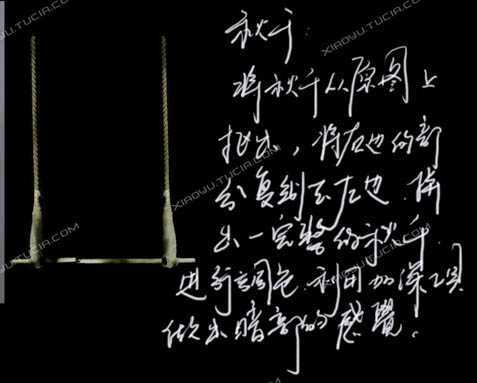 秋千:
将秋千从原图上
抠出，将右边的部
分复制至左边.作
出一完整的秋千.
进行调色.利用加深工具
做出暗部的感觉.
XIAOYU.TUCIA.COM
XIAOYU.TUCIA.COM
XIAOYU.TUCIA.COM
XIAOYU.TUCIA.COM